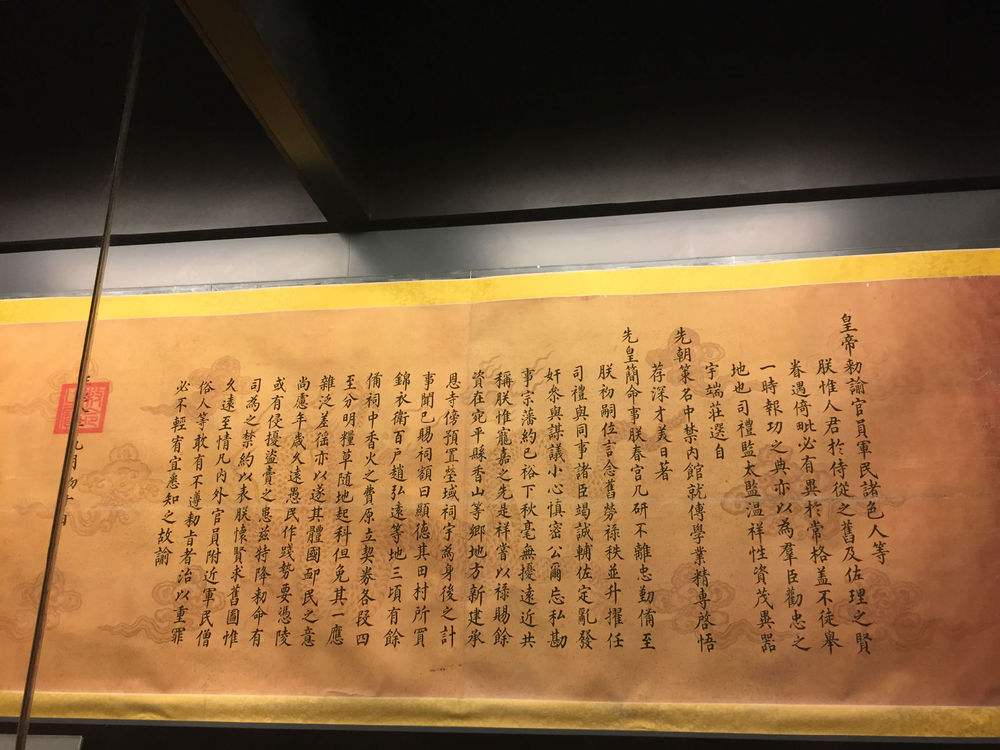 皇帝勑諭官員軍民諸色人等
朕惟人君於侍從之舊及佐理之賢
眷遇倚毗必有異於常格蓋不徒舉
一時報功之典亦以為羣臣勸忠之
地也司禮監太監溫祥性資茂異器
宇端莊選自
先朝策名中禁內館就傳學業精專啓悟
荐深才義日著
先皇簡命事朕春宮几研不離忠勤備至
朕初嗣位言念舊勞祿秩並升擢任
司禮與同事諸臣竭誠輔佐定亂發
奸叅與謀議小心慎密公爾忘私勘
事宗藩約己裕下秋毫無擾遠近共
稱朕惟寵嘉之先是祥嘗以祿賜餘
資在宛平縣香山等鄉地方新建承
恩寺傍預置塋域祠宇為身後之計
事聞已賜祠額曰顯德其田村所買
錦衣衛百戶趙弘遠等地三頃有餘
備祠中香火之費原立契券各段四
至分明糧草隨地起科但免其一應
雜泛差徭亦以遂其體國卹民之意
尚慮年歲久遠愚民作踐勢要憑陵
或有侵擾盜賣之患茲特降勑命有
司為之禁約以表朕懷賢求舊圖惟
久遠至情凡內外官員附近軍民僧
俗人等敢有不遵勑旨者治以重罪
必不輕宥宜悉知之故諭